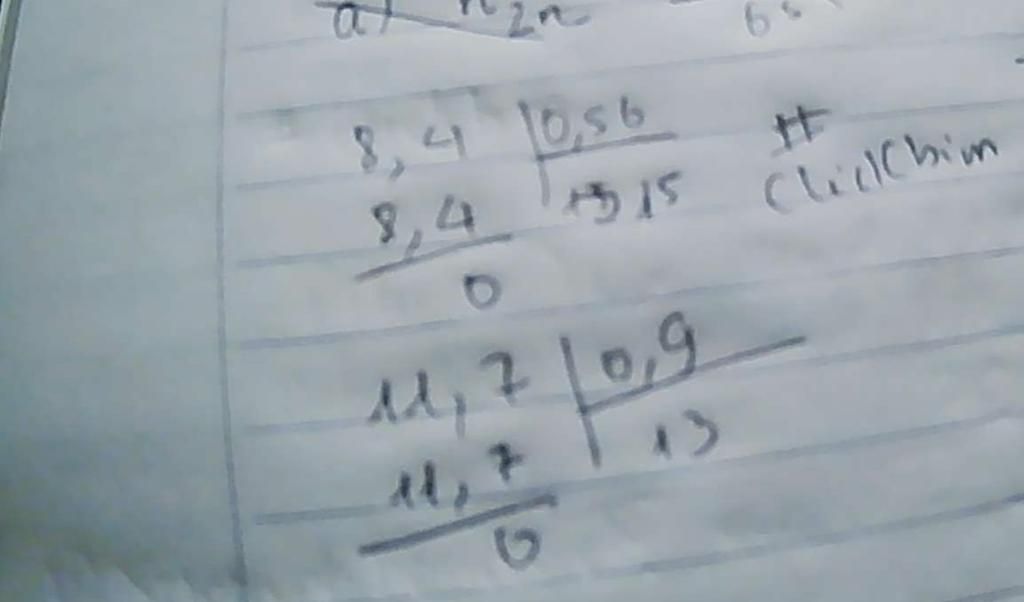 a) 2n
8,4 0,56 #
8,4 15 ClickChim
0
11,7 0,9
11,7 13
0